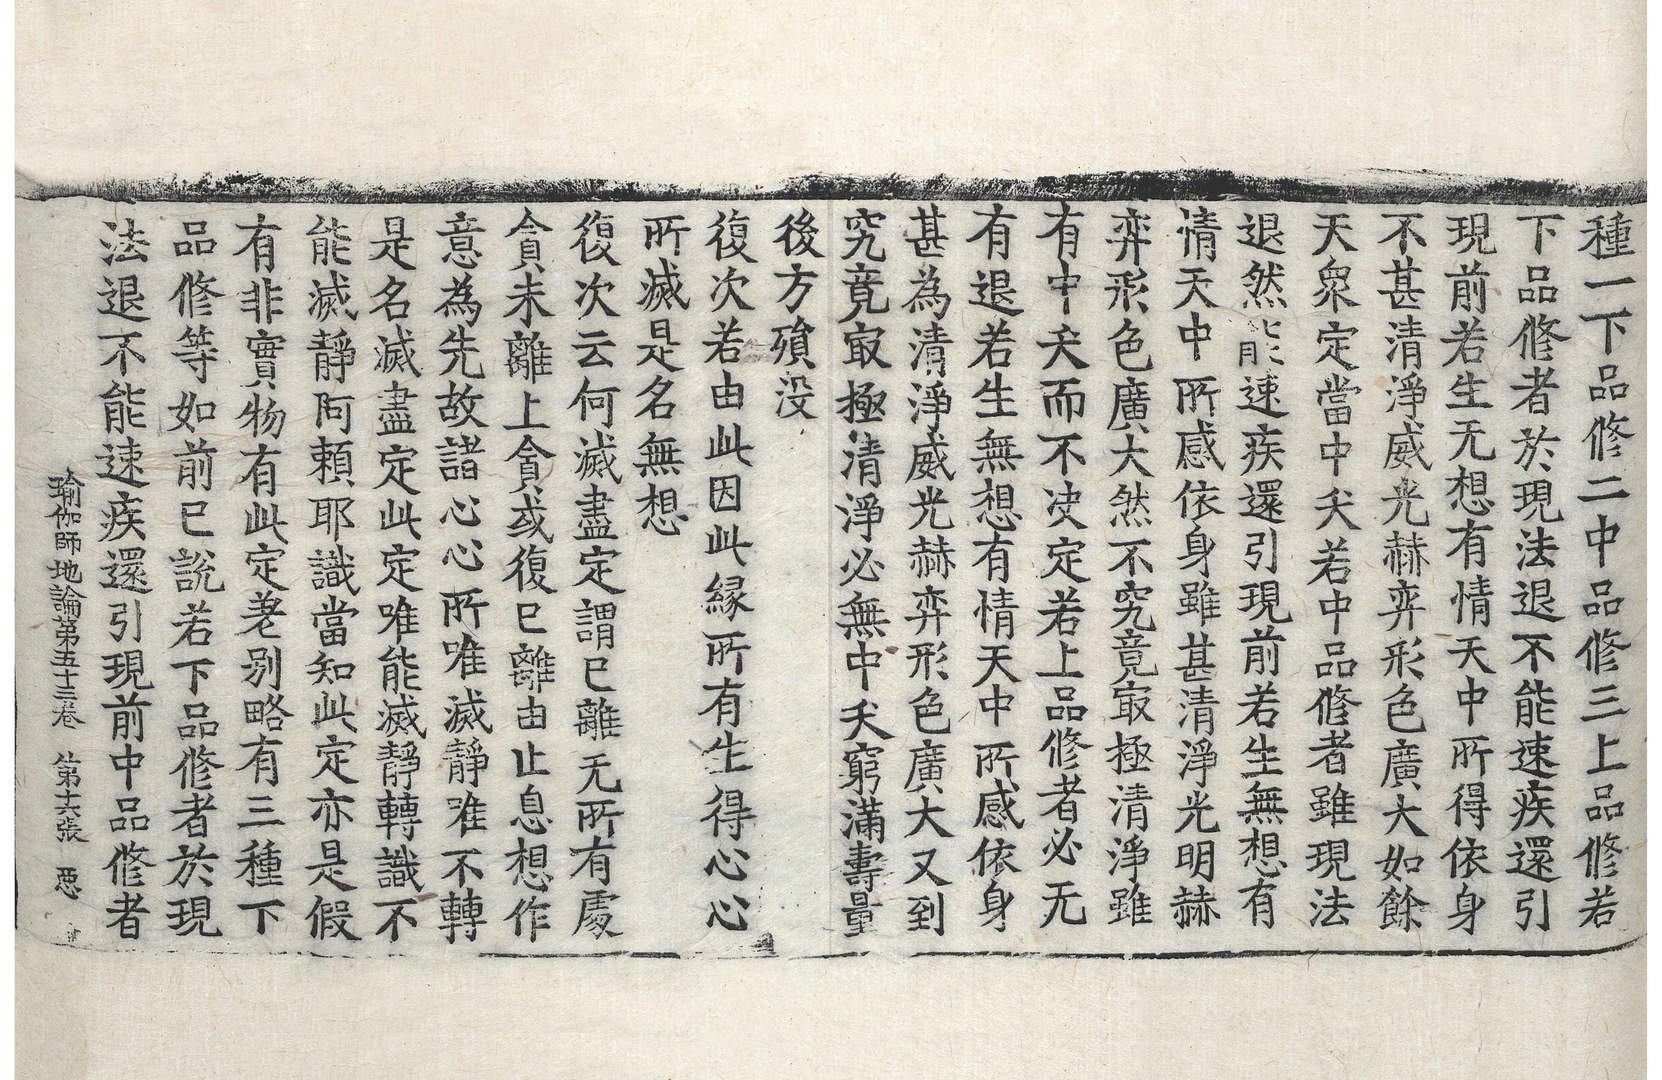 種一下品修二中品修三上品修若
下品修者於現法退不能速疾還引
現前若生无想有情天中所得依身
不甚清淨威光赫弈形色廣大如餘
天衆定當中夭若中品修者雖現法
退然能速疾還引現前若生無想有
情天中所感依身雖甚清淨光明赫
弈形色廣大然不究竟㝡極清淨雖
有中夭而不决定若上品修者必无
有退若生無想有情天中所感依身
甚為清淨威光赫弈形色廣大又到
究竟㝡極清淨必無中夭窮滿壽量
後方殞没
復次若由此因此緣所有生得心心
所滅是名無想
復次云何滅盡定謂已離无所有處
貪未離上貪或復已離由止息想作
意為先故諸心心所唯滅靜唯不轉
是名滅盡定此定唯能滅靜轉識不
能滅靜阿頼耶識當知此定亦是假
有非實物有此定差别略有三種下
品修等如前已說若下品修者於現
法退不能速疾還引現前中品修者
瑜伽師地論第五十三卷 第十六張 惡